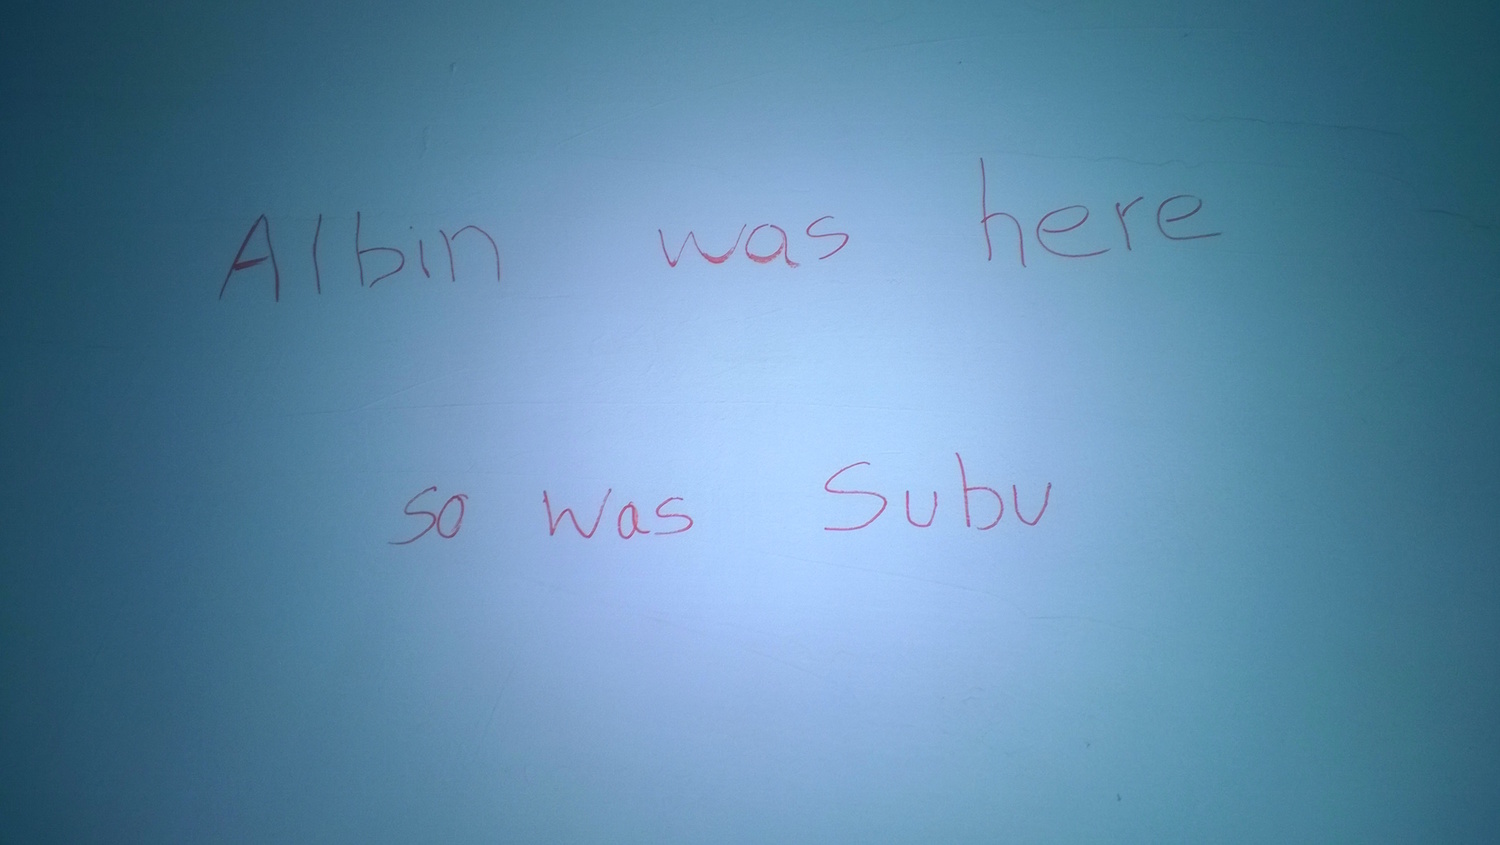 Albin was here
so was Subu